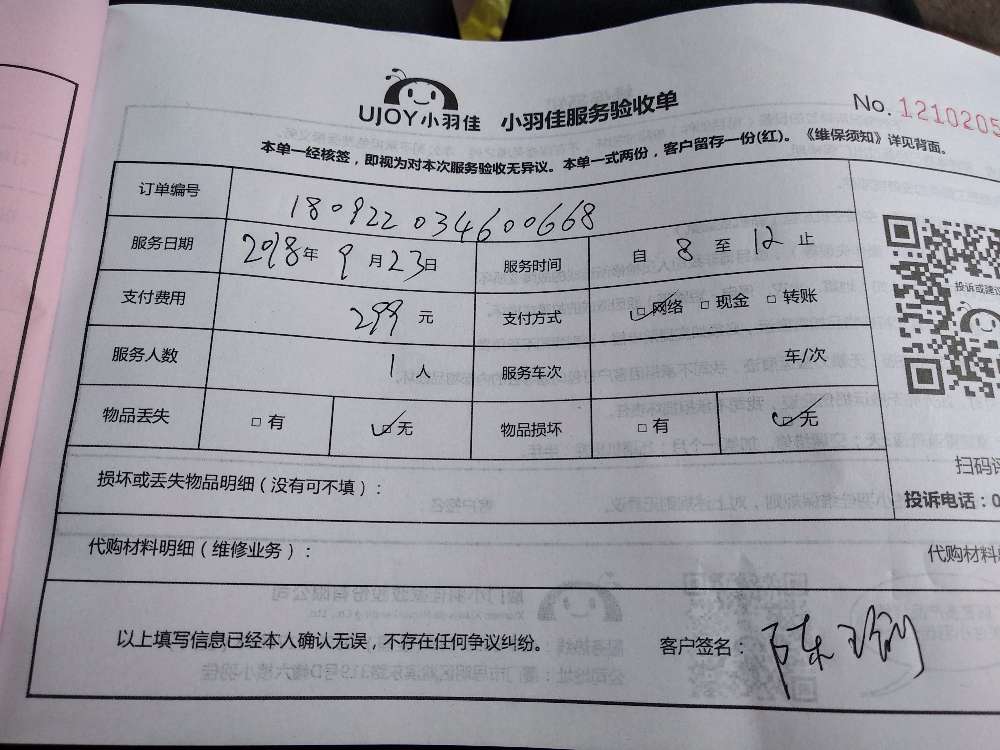 UJOY小羽佳 小羽佳服务验收单 No. 1210205
本单一经核签，即视为对本次服务验收无异议。本单一式两份，客户留存一份(红)。《维保须知》详见背面。
订单编号 180922034600668
服务日期 2018年 9月23日 服务时间 自 8 至 12 止
支付费用 299 元 支付方式 ☑网络 □现金 □转账
服务人数 1人 服务车次 车/次
物品丢失 □有 ☑无 物品损坏 □有 ☑无
投诉或建议
扫码
投诉电话：0
损坏或丢失物品明细（没有可不填）：
代购材料明细（维修业务）： 代购材料
以上填写信息已经本人确认无误，不存在任何争议纠纷。 客户签名：